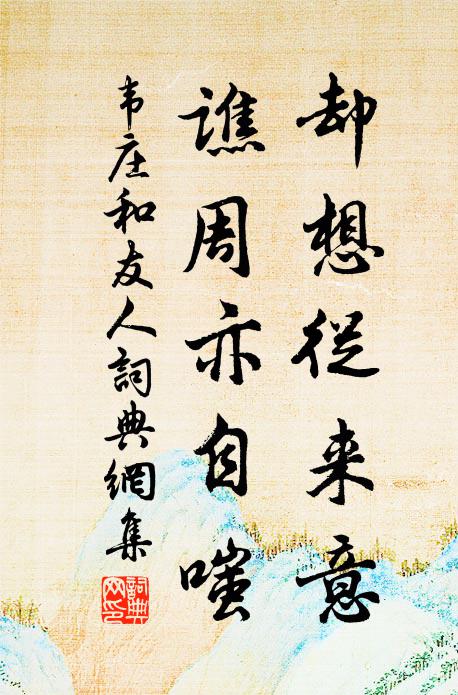 却想從来意
譙周亦自嗤
韦庄和友人詞典網集
詞典
网印